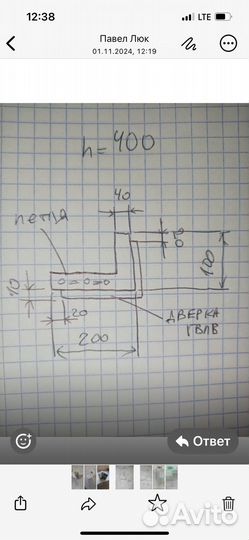 12:38
LTE
Павел Люк
01.11.2024, 12:19
h = 400
40
петля
10
100
10
20
дверка
ГВЛВ
200
Ответ
Avito